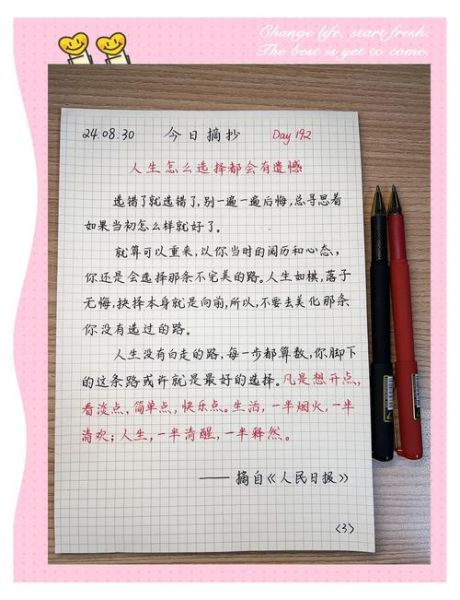 Change life, start fresh.
The best is yet to come.
24.08.30 今日摘抄 Day 192
人生怎么选择都会有遗憾
选错了就选错了,别一遍一遍后悔,总寻思着
如果当初怎么样就好了。
就算可以重来,以你当时的阅历和心态,
你还是会选择那条不完美的路。人生如棋,落子
无悔,抉择本身就是向前,所以,不要去美化那条
你没有选过的路。
人生没有白走的路,每一步都算数,你脚下
的这条路或许就是最好的选择。凡是想开点,
看淡点,简单点,快乐点。生活,一半烟火,一半
清欢;人生,一半清醒,一半释然。
——摘自《人民日报》
<3>